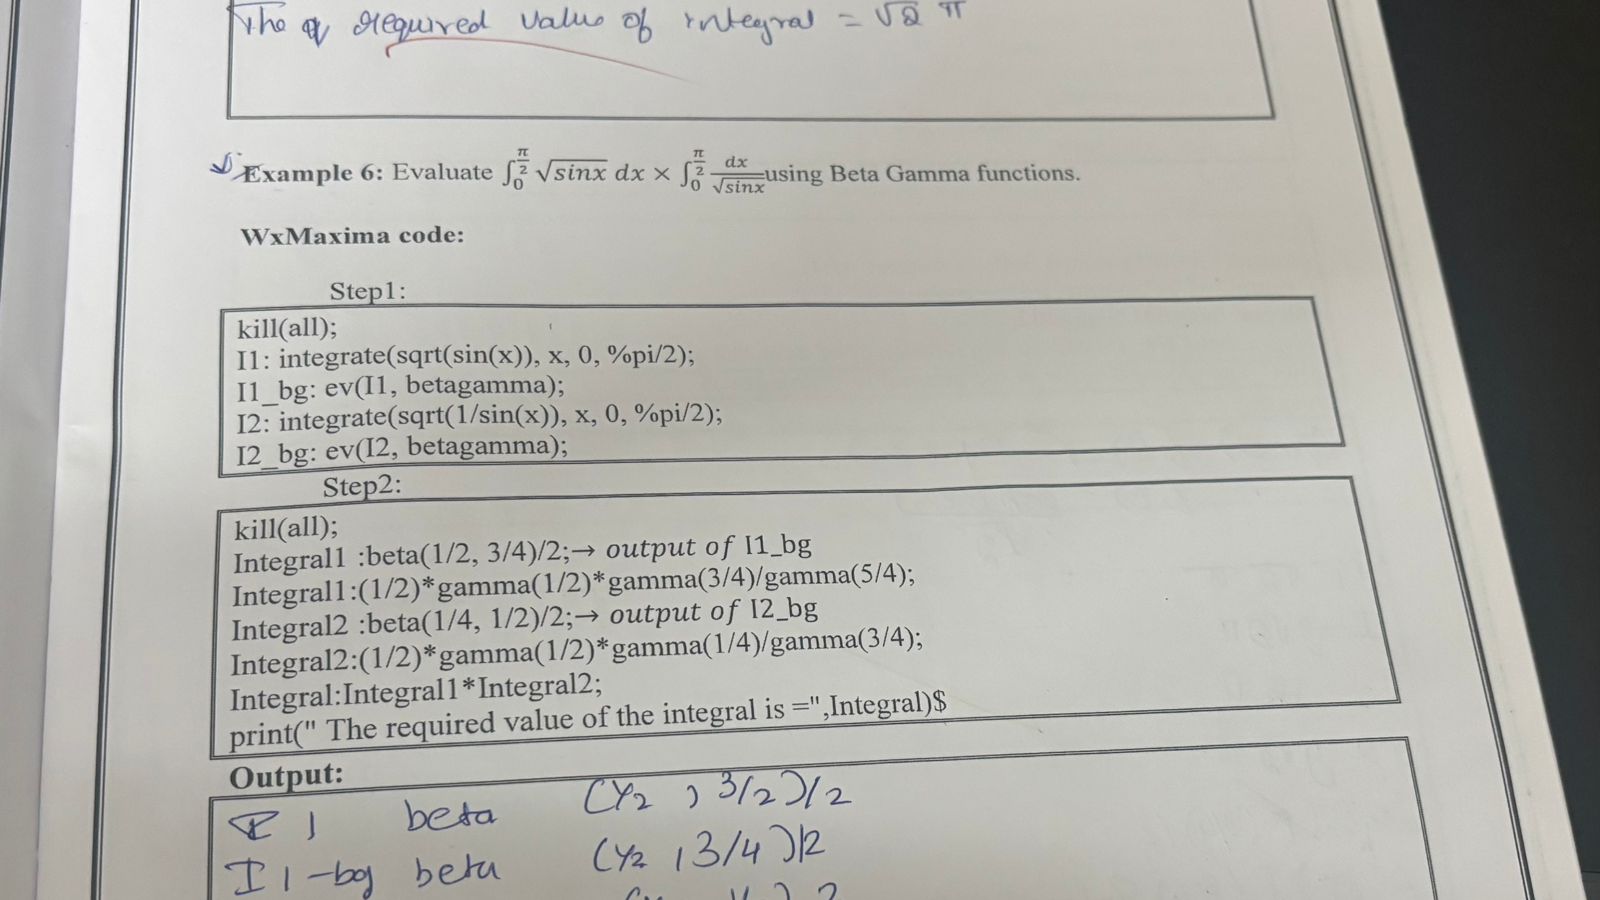 The required value of integral = √2 π
Example 6: Evaluate ∫₀^(π/2) √sinx dx × ∫₀^(π/2) dx/√sinx using Beta Gamma functions.
WxMaxima code:
Step1:
kill(all);
I1: integrate(sqrt(sin(x)), x, 0, %pi/2);
I1_bg: ev(I1, betagamma);
I2: integrate(sqrt(1/sin(x)), x, 0, %pi/2);
I2_bg: ev(I2, betagamma);
Step2:
kill(all);
Integral1 :beta(1/2, 3/4)/2;→ output of I1_bg
Integral1:(1/2)*gamma(1/2)*gamma(3/4)/gamma(5/4);
Integral2 :beta(1/4, 1/2)/2;→ output of I2_bg
Integral2:(1/2)*gamma(1/2)*gamma(1/4)/gamma(3/4);
Integral:Integral1*Integral2;
print(" The required value of the integral is =",Integral)$
Output:
I1 beta (1/2 , 3/2)/2
I1-bg beta (1/2 , 3/4)/2